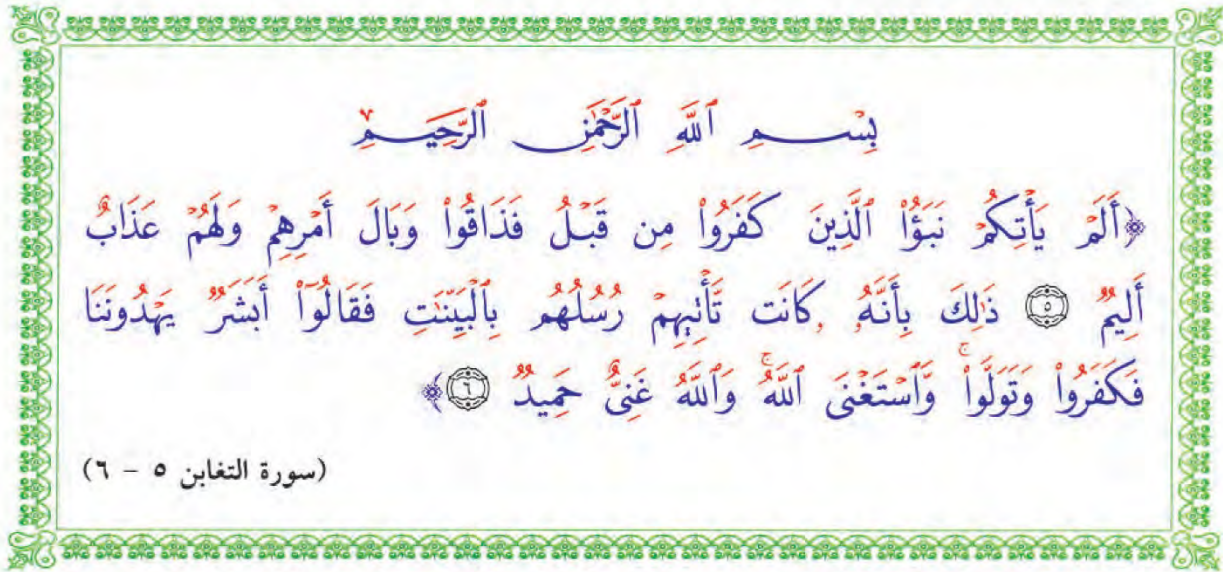 بِسْمِ ٱللَّهِ ٱلرَّحْمَٰنِ ٱلرَّحِيمِ
﴿أَلَمْ يَأْتِكُمْ نَبَؤُا۟ ٱلَّذِينَ كَفَرُوا۟ مِن قَبْلُ فَذَاقُوا۟ وَبَالَ أَمْرِهِمْ وَلَهُمْ عَذَابٌ
أَلِيمٌ ٥ ذَٰلِكَ بِأَنَّهُۥ كَانَت تَّأْتِيهِمْ رُسُلُهُم بِٱلْبَيِّنَٰتِ فَقَالُوٓا۟ أَبَشَرٌ يَهْدُونَنَا
فَكَفَرُوا۟ وَتَوَلَّوا۟ ۚ وَّٱسْتَغْنَى ٱللَّهُ ۚ وَٱللَّهُ غَنِىٌّ حَمِيدٌ ٦﴾
(سورة التغابن ٥ – ٦)